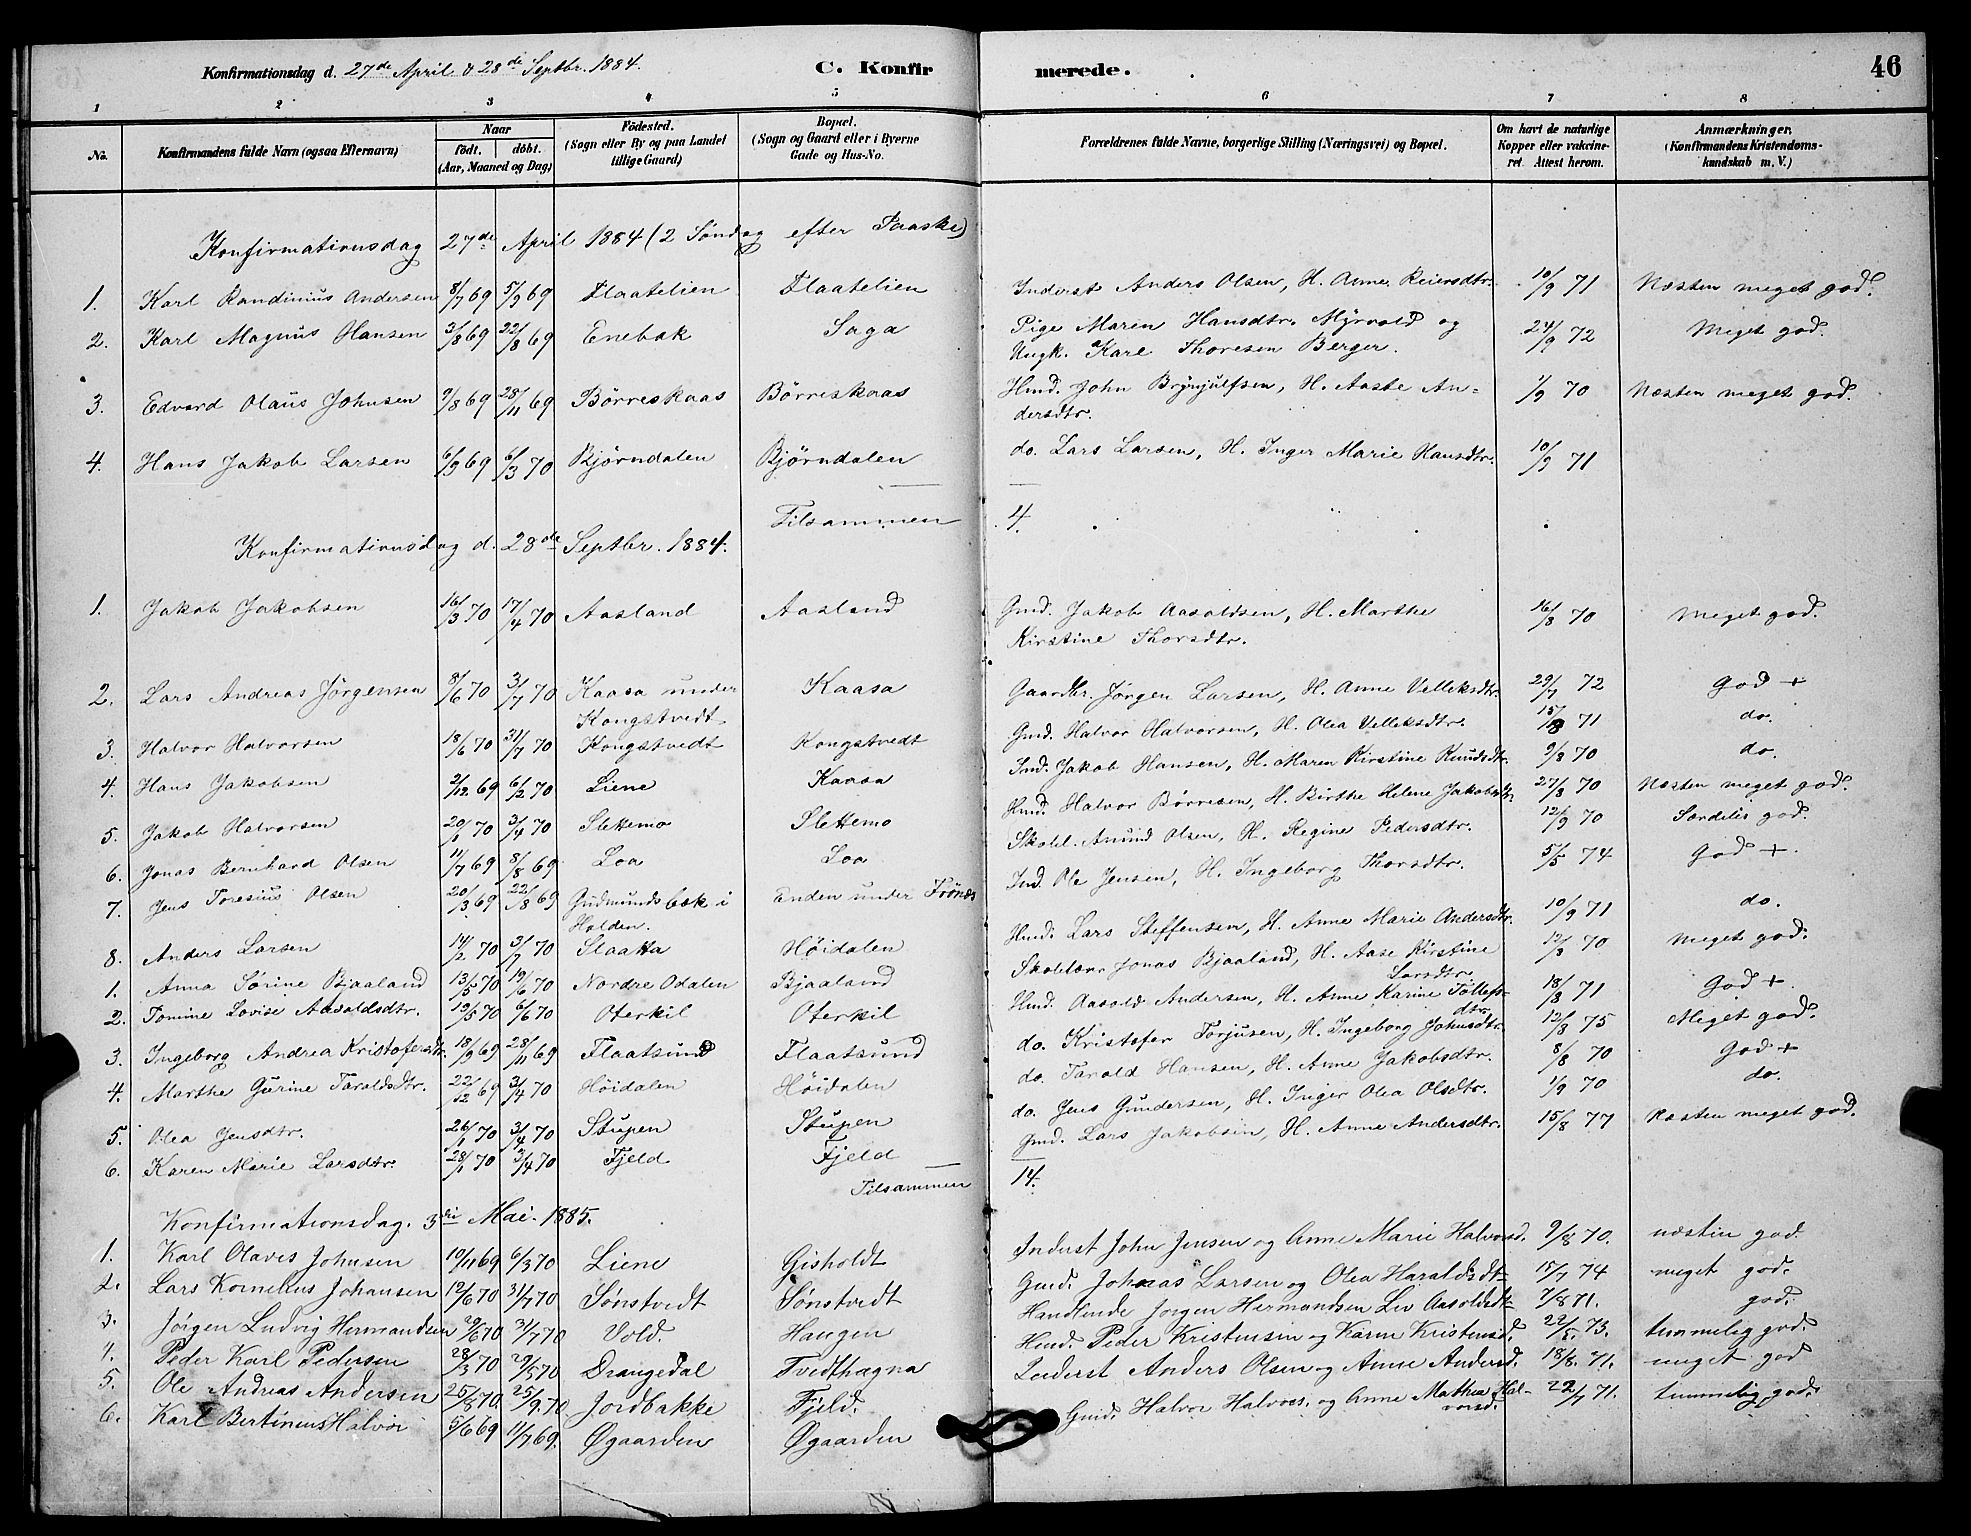 Konfirmationsdag d. 27de April & 28de Septbr. 1884. C. Konfirmerede. 46
1 2 3 4 5 6 7 8
No. Konfirmandens fulde Navn (ogsaa Efternavn) Naar födt. döbt. (Aar, Maaned og Dag) Födested. (Sogn eller By og paa Landet tillige Gaard) Bopæl. (Sogn og Gaard eller i Byerne Gade og Hus-No. Forældrenes fulde Navne, borgerlige Stilling (Næringsvei) og Bopæl. Om havt de naturlige Kopper eller vakcineret. Attest herom. Anmærkninger. (Konfirmandens Kristendomskundskab m. V.)
Konfirmationsdag 27de April 1884 (2 Søndag efter Paaske)
1. Karl Randinius Andersen 8/7 69 5/9 69 Flaatelien Flaatelien Inderst Anders Olsen, H. Anne Reiersdtr. 10/9 71 Næsten meget god.
2. Karl Magnus Hansen 3/8 69 22/8 69 Enebak Saga Pige Maren Hansdtr. Myrvold og Ungk. Karl Thoresen Berger. 24/9 72 Meget god.
3. Edvard Olaus Johnsen 9/8 69 28/11 69 Börreskaas Börreskaas Hmd. John Brynjulfsen, H. Aaste Andersdtr. 1/9 70 Næsten meget god.
4. Hans Jakob Larsen 6/9 69 6/3 70 Bjørndalen Bjørndalen do. Lars Larsen, H. Inger Marie Hansdtr. 10/9 71
Tilsammen 4.
Konfirmationsdag d. 28de Septbr. 1884.
1. Jakob Jakobsen 16/3 70 17/4 70 Aasland Aasland Gmd. Jakob Aasoldsen, H. Marthe Kirstine Thorsdtr. 16/8 70 Meget god.
2. Lars Andreas Jörgensen 8/6 70 3/7 70 Kaasa under Kongstvedt Kaasa Gaardbr. Jörgen Larsen, H. Anne Velleksdtr. 29/7 72 God +
3. Halvor Halvorsen 18/6 70 31/7 70 Kongstvedt Kongstvedt Gmd. Halvor Halvorsen, H. Olea Velleksdtr. 15/8 71 do.
4. Hans Jakobsen 2/12 69 6/2 70 Liene Kaasa Ind. Jakob Hansen, H. Maren Kirstine Knudsdtr. 9/8 70 do.
5. Jakob Halvorsen 20/1 70 3/4 70 Slettemo Slettemo Hmd. Halvor Börresen, H. Birthe Helene Jakobsdtr. 27/8 70 Næsten meget god.
6. Jonas Bernhard Olsen 11/7 69 8/8 69 Loa Loa Skolel. Amund Olsen, H. Regine Pedersdtr. 12/9 70 Særdeles god.
7. Jens Toresius Olsen 20/3 69 22/8 69 Gudmundsbæk i Holden. Enden under Frönes Ind. Ole Jensen, H. Ingeborg Thorsdtr. 5/5 74 God +.
8. Anders Larsen 14/2 70 3/7 70 Slaatta Höidalen Hmd. Lars Steffensen, H. Anne Marie Andersdtr. 10/9 71 do.
1. Anna Sörine Bjaaland 13/5 70 19/6 70 Nordre Odalen Bjaaland Skolelærer Jonas Bjaaland, H. Aase Kirstine Larsdtr. 12/8 70 Meget god.
2. Tomine Lovise Aasoldsdtr. 19/5 70 6/6 70 Oterkil Oterkil Hmd. Aasold Andersen, H. Anne Karine Tollefsdtr. 18/8 71 God +.
3. Ingeborg Andrea Kristofersdtr. 18/9 69 28/11 69 Flaatsund Flaatsund do. Kristofer Torjusen, H. Ingeborg Johnsdtr. 12/8 75 Meget god.
4. Marthe Gurine Taraldsdtr. 22/12 69 3/4 70 Höidalen Höidalen do. Tarald Hansen, H. Anne Jakobsdtr. 8/8 70 God +
5. Olea Jensdtr. 26/1 70 3/4 70 Stupen Stupen do. Jens Gundersen, H. Inger Olea Olsdtr. 1/9 70 do.
6. Karen Marie Larsdtr. 28/1 70 3/4 70 Fjeld Fjeld Gmd. Lars Jakobsen, H. Anne Andersdtr. 15/8 77 Næsten meget god.
Tilsammen 14.
Konfirmationsdag. 3die Mai. 1885.
1. Karl Olaves Johnsen 19/11 69 6/3 70 Liene Gisholdt Inderst John Jensen og Anne Marie Halvorsd. 9/8 70. næsten god.
2. Lars Kornelius Johansen 12/6 70 31/7 70 Sønstvedt Sønstvedt Gmd. Johnas Larsen og Olea Haraldsdtr. 15/7 74 meget god.
3. Jörgen Ludvig Hermandsen 29/6 70 31/7 70 Vold. Haugen Handlende Jørgen Hermandsen Liv Aasoldsdtr. 7/8 71. god.
4. Peder Karl Pedersen 28/3 70 29/5 70 Drangedal Tvedthagna Hmd. Peder Kristensen og Karen Kristensd. 22/5. 73. temmelig god.
5. Ole Andreas Andersen 25/8 70. 25/9. 70 Jordbakke Fjeld. Inderst Anders Olsen og Anne Andersd. 18/8. 71. meget god
6. Karl Bertinius Halvor 5/6 69 11/7 69. Øgaarden Øgaarden Gmd. Halvor Halvors. og Anne Mathea Halvorsd. 22/7 71. temmelig god.